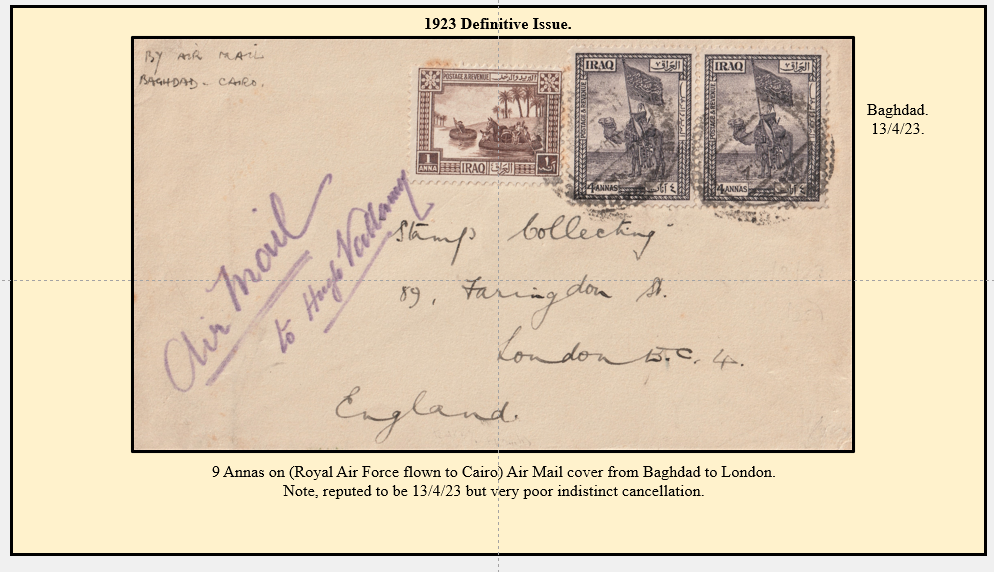 1923 Definitive Issue.
BY AIR MAIL
BAGHDAD - CAIRO.
POSTAGE & REVENUE
1 ANNA
IRAQ
IRAQ العراق
POSTAGE & REVENUE
4 ANNAS
IRAQ العراق
POSTAGE & REVENUE
4 ANNAS
Baghdad.
13/4/23.
Air Mail
to Hugh
Stamp Collecting
89, Faringdon St.
London E.C. 4.
England.
9 Annas on (Royal Air Force flown to Cairo) Air Mail cover from Baghdad to London.
Note, reputed to be 13/4/23 but very poor indistinct cancellation.